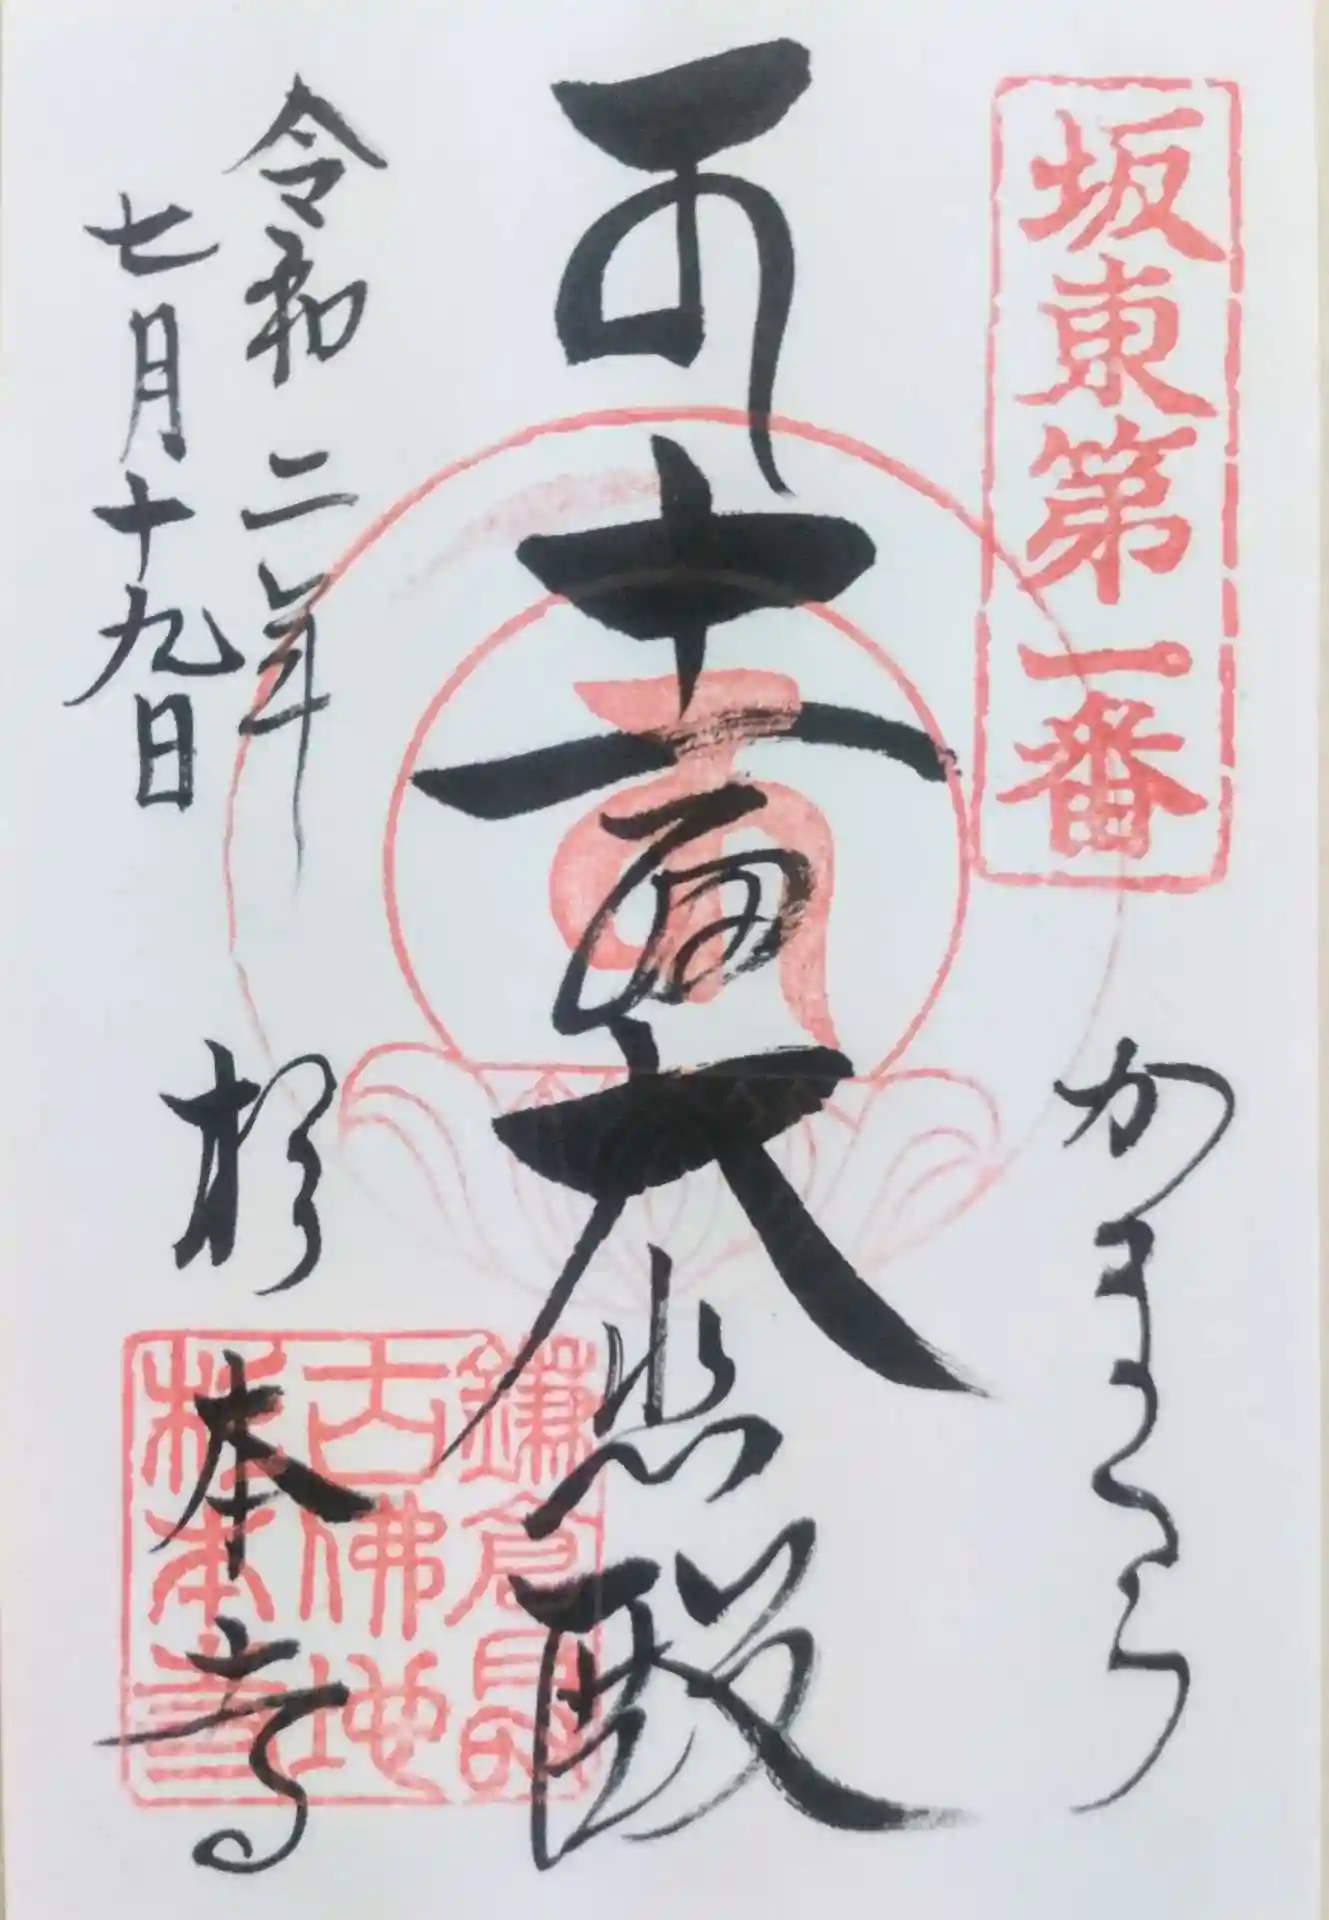 坂東第一番
かまくら
十一面大悲殿
令和二年
七月十九日
杉本寺
鎌倉最
古佛地
杉本寺